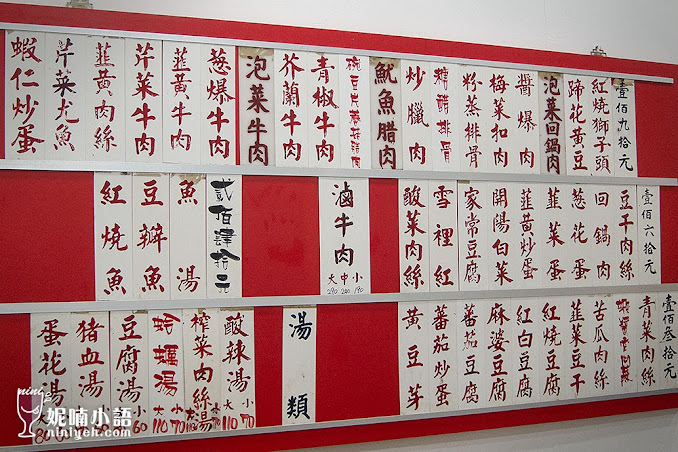 壹佰九拾元
紅燒獅子頭
蹄花黃豆
泡菜回鍋肉
醬爆肉
梅菜扣肉
粉蒸排骨
糖醋排骨
炒臘肉
魷魚腊肉
青椒牛肉
芥蘭牛肉
泡菜牛肉
葱爆牛肉
韮黃牛肉
芹菜牛肉
韮黃肉絲
芹菜尤魚
蝦仁炒蛋
壹佰六拾元
豆干肉絲
回鍋肉
葱蛋
韮菜蛋
韮黃炒蛋
開陽白菜
家常豆腐
雪裡紅
酸菜肉絲
滷牛肉
大中小
貳佰肆拾元
魚湯
豆瓣魚
紅燒魚
壹佰叁拾元
青菜肉絲
苦瓜肉絲
韮菜豆干
紅燒豆腐
紅白豆腐
麻婆豆腐
蕃茄豆腐
蕃茄炒蛋
黃豆芽
湯類
酸辣湯
大110 小70
榨菜肉絲湯
蛤蠣湯
小70
豆腐湯
小60
豬血湯
蛋花湯
妮喃小語
niniyeh.com